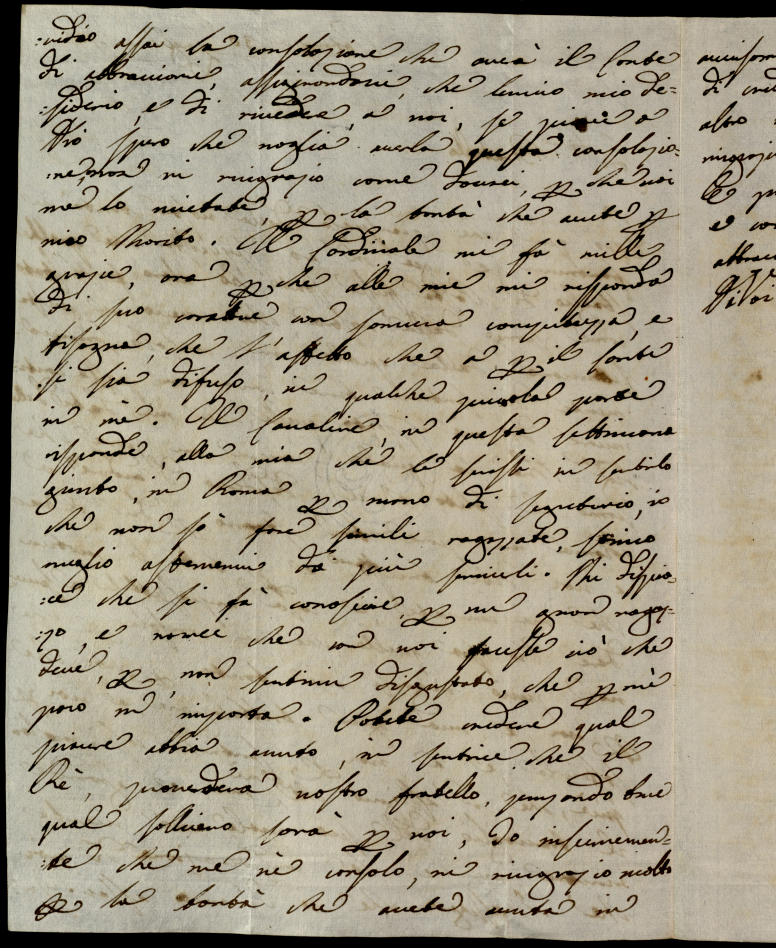 :vidio assai la consolazione che averà il Conte
di abbracciarvi, assicurandovi, che l'unico mio de=
:siderio, e di rivedere, a noi, se piacerà a
Dio spero che voglia averla questa consolazio:
:ne, non vi ringrazio come dovrei, p che voi
me lo vietate, p la bontà che avete p
mio Marito. Il Cardinale mi fà mille
grazie, ora p che alle mie mi risponda
di suo carattere con somma compitezza, e
bisogna, che l'affetto che a p il Conte
si sia difuso, in qualche piccola parte
in mè. Il Cavaliere, in questa settimana
risponde, alla mia che le scrissi in subito
giunto, in Roma p mano di segretario, io
che non sò fare simili ragazzate, stimo
meglio astenermi dà più scriverli. Mi dispia:
:ce che si fà conoscere, p un gran ragaz:
:zo, e vorrei che con voi facesse ciò che
deve, p non sentirvi disgustato, che p mè
poco m' importa. Potete credere qual
piacere abbia avuto, in sentire che il
Rè, provederà nostro fratello, pensando bene
qual sollievo sarà p voi, Io insiememen=
:te che me nè consolo, vi ringrazio molto
p la bontà che avete avuta in
di
altro
e con
Di Voi